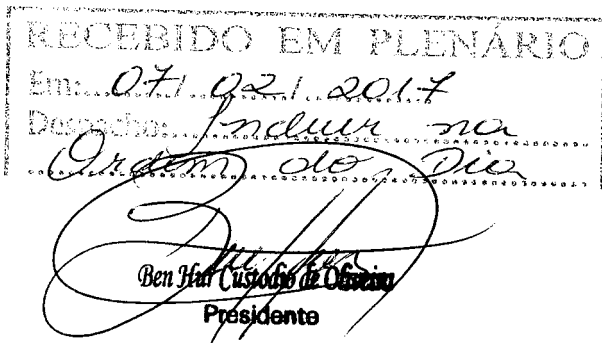 RECEBIDO EM PLENÁRIO
Em:...07/.02/.2017
Despacho: Incluir na
Ordem do Dia
Ben Hur Custodio de Oliveira
Presidente